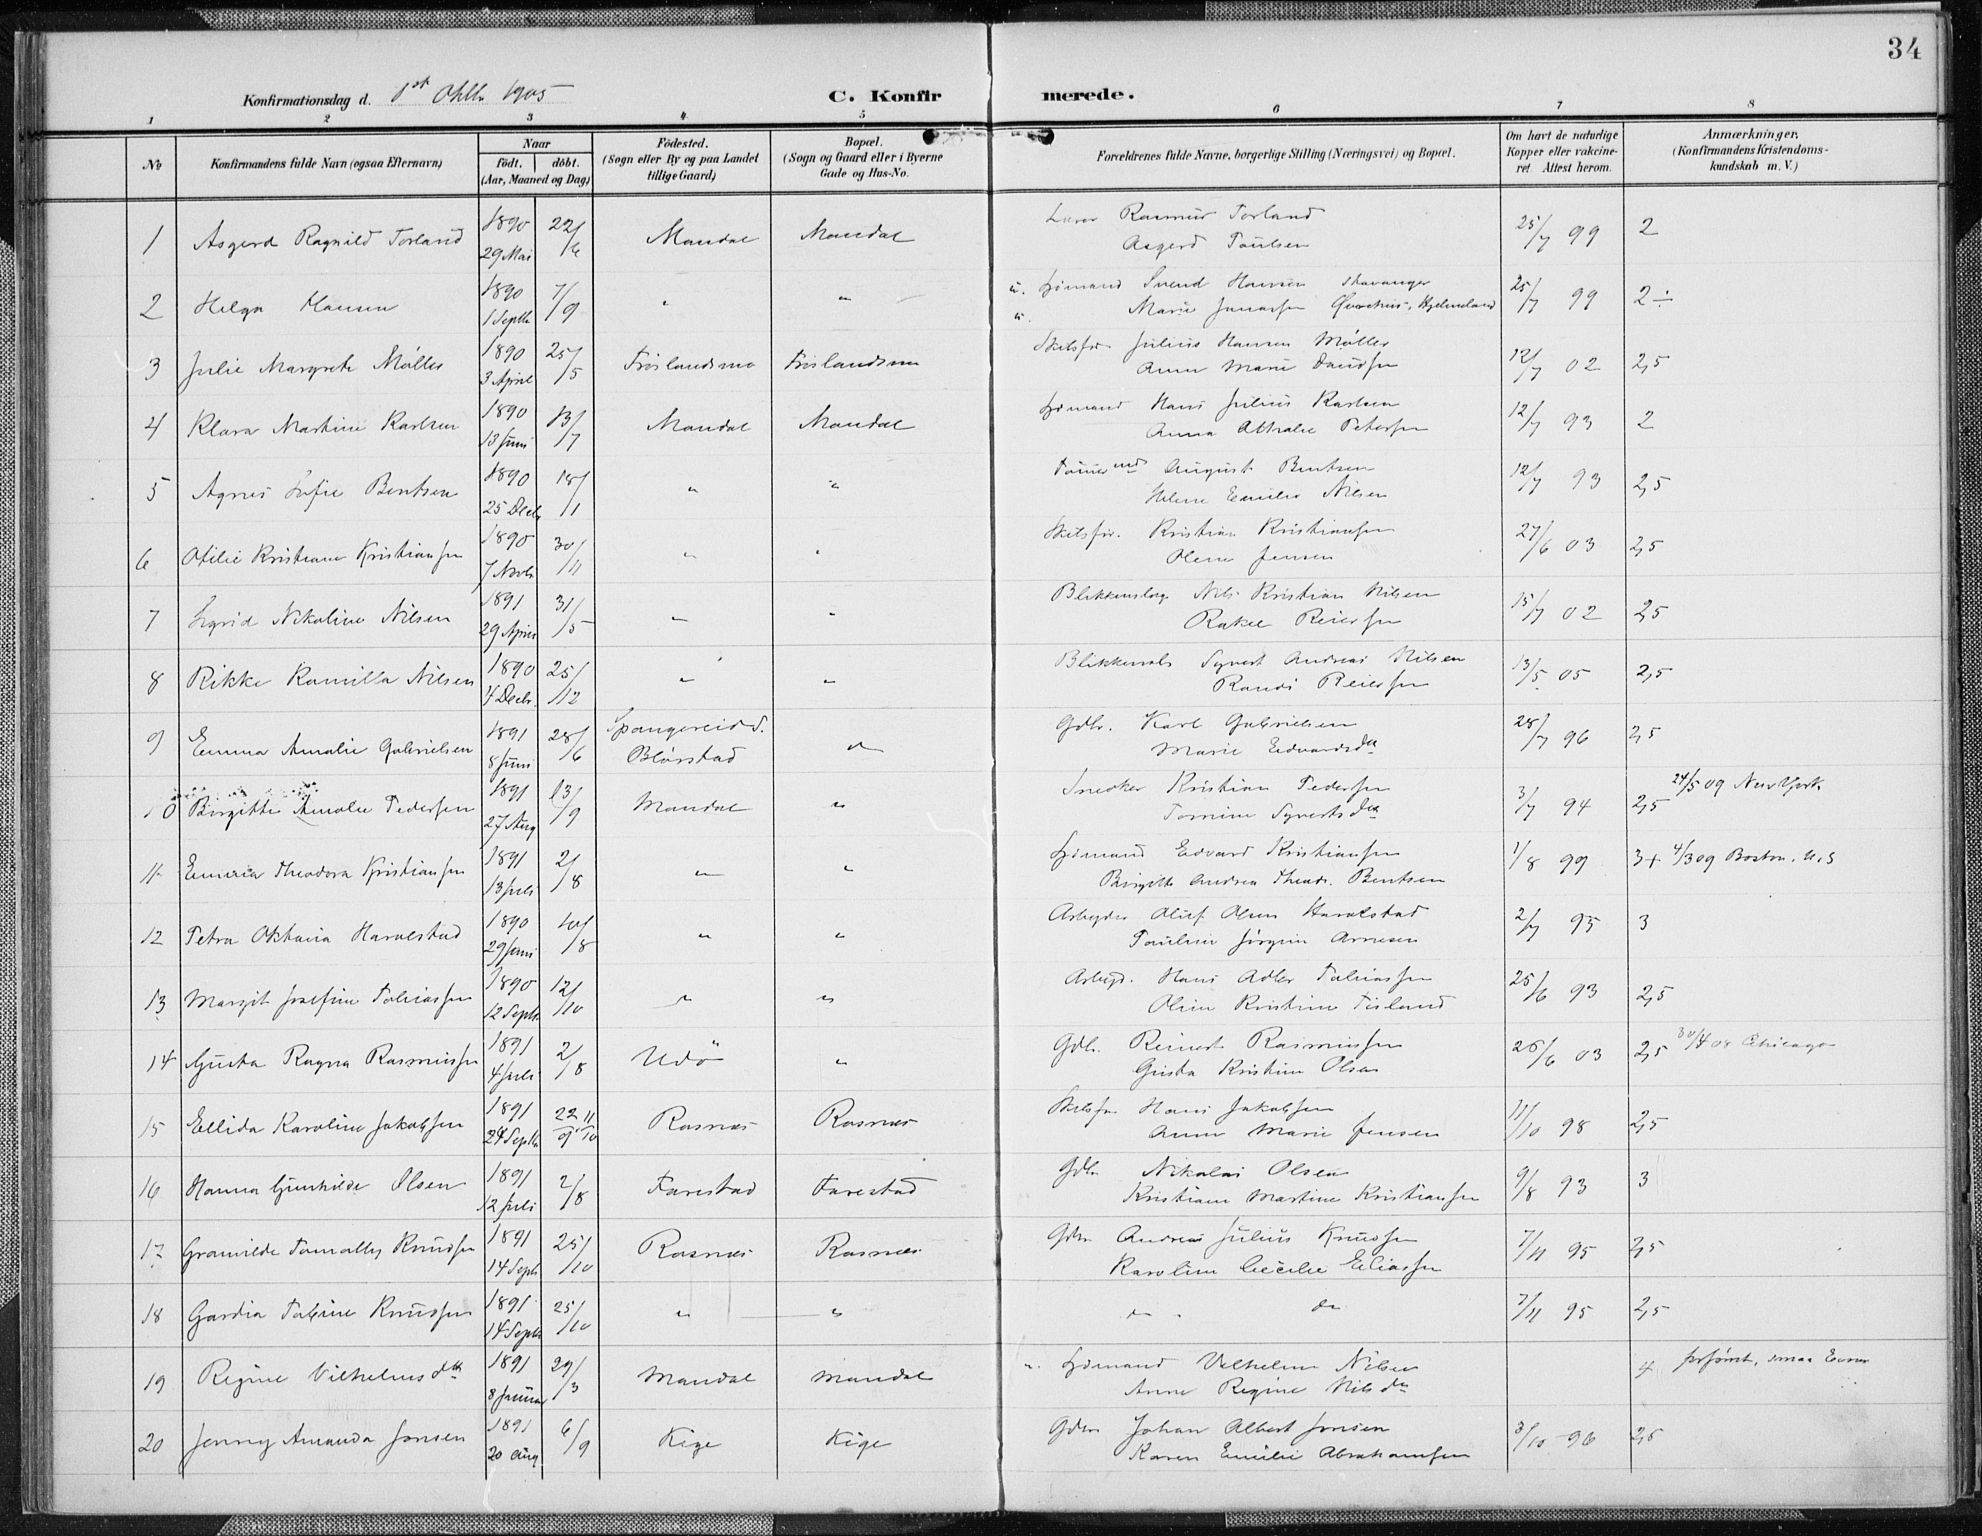 34
Konfirmationsdag d. 1st Oktb 1905
C. Konfirmerede.
1 2 3 4 5 6 7 8
No
Konfirmandens fulde Navn (ogsaa Efternavn)
Naar
født. døbt.
(Aar, Maaned og Dag)
Fødested.
(Sogn eller By og paa Landet
tillige Gaard)
Bopæl.
(Sogn og Gaard eller i Byerne
Gade og Hus-No.
Forældrenes fulde Navne, borgerlige Stilling (Næringsvei) og Bopæl.
Om havt de naturlige
Kopper eller vakcine-
ret Attest herom.
Anmærkninger.
(Konfirmandens Kristendoms-
kundskab m. V.)
1 Asgerd Ragnild Torland 1890 29 Mai 22/6 Mandal Mandal Lærer Rasmus Torland 25/7 99 2
Asgerd Paulsen
2 Helga Hansen 1890 1 Septb 7/9 " " u. Sømand Svend Hansen Stavanger 25/7 99 2÷
u. Marie Jonassen Hjelmeland
3 Julie Margrete Møller 1890 3 April 25/5 Frøslandsmo Frøslandsmo Skibsfør. Julius Hansen Møller 12/7 02 2,5
Anne Marie Davidsen
4 Klara Martine Karlsen 1890 13 Juni 13/7 Mandal Mandal Sømand Hans Julius Karlsen 12/7 93 2
Anna Petersen
5 Agnes Sofie Bentsen 1890 25 Decb 18/1 " " Tømmermd August Bentsen 12/7 93 2,5
Helene Emilie Nilsen
6 Otilie Kristiane Kristiansen 1890 7 Novb 30/11 " " Skibsfør. Kristian Kristiansen 27/6 03 2,5
Olene Jensen
7 Sigrid Nikoline Nilsen 1891 29 April 31/5 " " Blikkenslag. Nils Kristian Nilsen 15/7 02 2,5
Rakel Reiersen
8 Rikke Kamilla Nilsen 1890 4 Decb. 25/12 " " Blikkensl. Syvert Andreas Nilsen 13/5 05 2,5
Randi Reiersen
9 Emma Amalie Gabrielsen 1891 8 Juni 28/6 Spangereid S. Blørstad do Gdbr. Karl Gabrielsen 28/7 96 2,5
Marie Edvardsda
10 Birgitte Amalie Pedersen 1891 27 Aug 13/9 Mandal " Snedker Kristian Pedersen 3/7 94 2,5 24/5 09 New York
Tomine Syvertsda
11 Emma Theodora Kristiansen 1891 13 Juli 2/8 " " Sømand Edvard Kristiansen 1/8 99 3+ 4/3 09 Boston. U.S
Birgitte Andrea Theodr. Bentsen
12 Petra Oktavia Haralstad 1890 29 Juni 10/8 " " Arbeyder Oluf Olsen Haralstad 2/7 95 3
Pauline Jørgine Arnesen
13 Margit Josefine Tobiassen 1890 12 Septb 12/10 " " Arbeyd. Hans Adler Tobiassen 25/6 93 2,5
Oline Kristine Tisland
14 Gusta Ragna Rasmussen 1891 4 Juli 2/8 Udö " Gdb. Reinert Rasmussen 26/6 03 2,5 30/4 08 Chicago
Gusta Kristine Olsen
15 Ellida Karoline Jakobsen 1891 24 Septb 22/9 11/10 Rosnes Rosnes Skibsfr. Hans Jakobsen 11/10 98 2,5
Anne Marie Jensen
16 Hanna Gunhilde Olsen 1891 12 Juli 2/8 Farestad Farestad Gdbr Nikolai Olsen 9/8 93 3
Kristiane Martine Kristiansen
17 Gramilde Knudsen 1891 14 Septb 25/10 Rosnes Rosnes Gdbr Andreas Julius Knudsen 7/11 95 2,5
Karoline Cecilie Eliassen
18 Gardia Tobine Knudsen 1891 14 Septb 25/10 " " do do 7/11 95 2,5
19 Regine Vilhelmsdtr 1891 8 Januar 29/3 Mandal Mandal u. Sømand Vilhelm Nilsen 4
Anne Regine Nilsda
20 Jenny Amanda Jonsen 1891 20 Aug 6/9 Kige Kige Gdbr Johan Albert Jonsen 3/10 96 2,5
Karen Emilie Abrahamsen